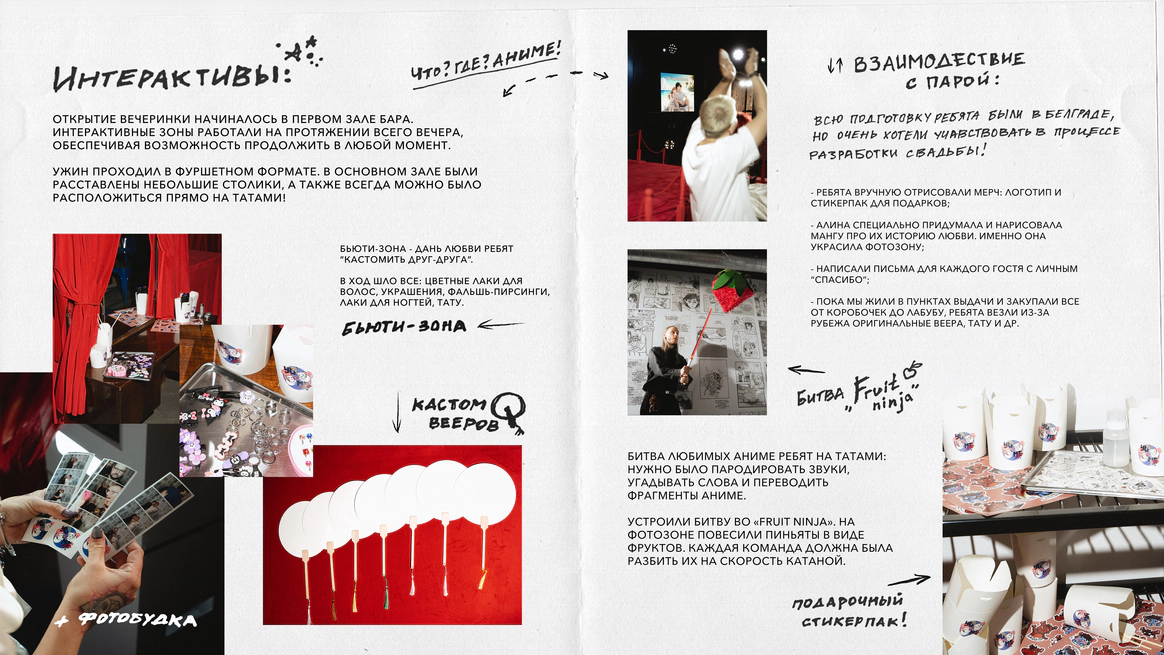 Интерактивы:
Что? Где? Аниме!
ОТКРЫТИЕ ВЕЧЕРИНКИ НАЧИНАЛОСЬ В ПЕРВОМ ЗАЛЕ БАРА.
ИНТЕРАКТИВНЫЕ ЗОНЫ РАБОТАЛИ НА ПРОТЯЖЕНИИ ВСЕГО ВЕЧЕРА,
ОБЕСПЕЧИВАЯ ВОЗМОЖНОСТЬ ПРОДОЛЖИТЬ В ЛЮБОЙ МОМЕНТ.
УЖИН ПРОХОДИЛ В ФУРШЕТНОМ ФОРМАТЕ. В ОСНОВНОМ ЗАЛЕ БЫЛИ
РАССТАВЛЕНЫ НЕБОЛЬШИЕ СТОЛИКИ, А ТАКЖЕ ВСЕГДА МОЖНО БЫЛО
РАСПОЛОЖИТЬСЯ ПРЯМО НА ТАТАМИ!
БЬЮТИ-ЗОНА - ДАНЬ ЛЮБВИ РЕБЯТ
"КАСТОМИТЬ ДРУГ-ДРУГА".
В ХОД ШЛО ВСЕ: ЦВЕТНЫЕ ЛАКИ ДЛЯ
ВОЛОС, УКРАШЕНИЯ, ФАЛЬШЬ-ПИРСИНГИ,
ЛАКИ ДЛЯ НОГТЕЙ, ТАТУ.
БЬЮТИ-ЗОНА
КАСТОМ
ВЕЕРОВ
+ ФОТОБУДКА
ВЗАИМОДЕСТВИЕ
С ПАРОЙ:
ВСЮ ПОДГОТОВКУ РЕБЯТА БЫЛИ В БЕЛГРАДЕ,
НО ОЧЕНЬ ХОТЕЛИ УЧАВСТВОВАТЬ В ПРОЦЕССЕ
РАЗРАБОТКИ СВАДЬБЫ!
- РЕБЯТА ВРУЧНУЮ ОТРИСОВАЛИ МЕРЧ: ЛОГОТИП И
СТИКЕРПАК ДЛЯ ПОДАРКОВ;
- АЛИНА СПЕЦИАЛЬНО ПРИДУМАЛА И НАРИСОВАЛА
МАНГУ ПРО ИХ ИСТОРИЮ ЛЮБВИ. ИМЕННО ОНА
УКРАСИЛА ФОТОЗОНУ;
- НАПИСАЛИ ПИСЬМА ДЛЯ КАЖДОГО ГОСТЯ С ЛИЧНЫМ
"СПАСИБО";
- ПОКА МЫ ЖИЛИ В ПУНКТАХ ВЫДАЧИ И ЗАКУПАЛИ ВСЕ
ОТ КОРОБОЧЕК ДО ЛАБУБУ, РЕБЯТА ВЕЗЛИ ИЗ-ЗА
РУБЕЖА ОРИГИНАЛЬНЫЕ ВЕЕРА, ТАТУ И ДР.
БИТВА „Fruit
ninja"
БИТВА ЛЮБИМЫХ АНИМЕ РЕБЯТ НА ТАТАМИ:
НУЖНО БЫЛО ПАРОДИРОВАТЬ ЗВУКИ,
УГАДЫВАТЬ СЛОВА И ПЕРЕВОДИТЬ
ФРАГМЕНТЫ АНИМЕ.
УСТРОИЛИ БИТВУ ВО «FRUIT NINJA». НА
ФОТОЗОНЕ ПОВЕСИЛИ ПИНЬЯТЫ В ВИДЕ
ФРУКТОВ. КАЖДАЯ КОМАНДА ДОЛЖНА БЫЛА
РАЗБИТЬ ИХ НА СКОРОСТЬ КАТАНОЙ.
ПОДАРОЧНЫЙ
СТИКЕРПАК!